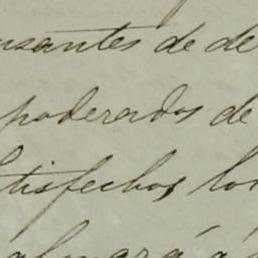 usantes de de
poderados de
tisfechos los